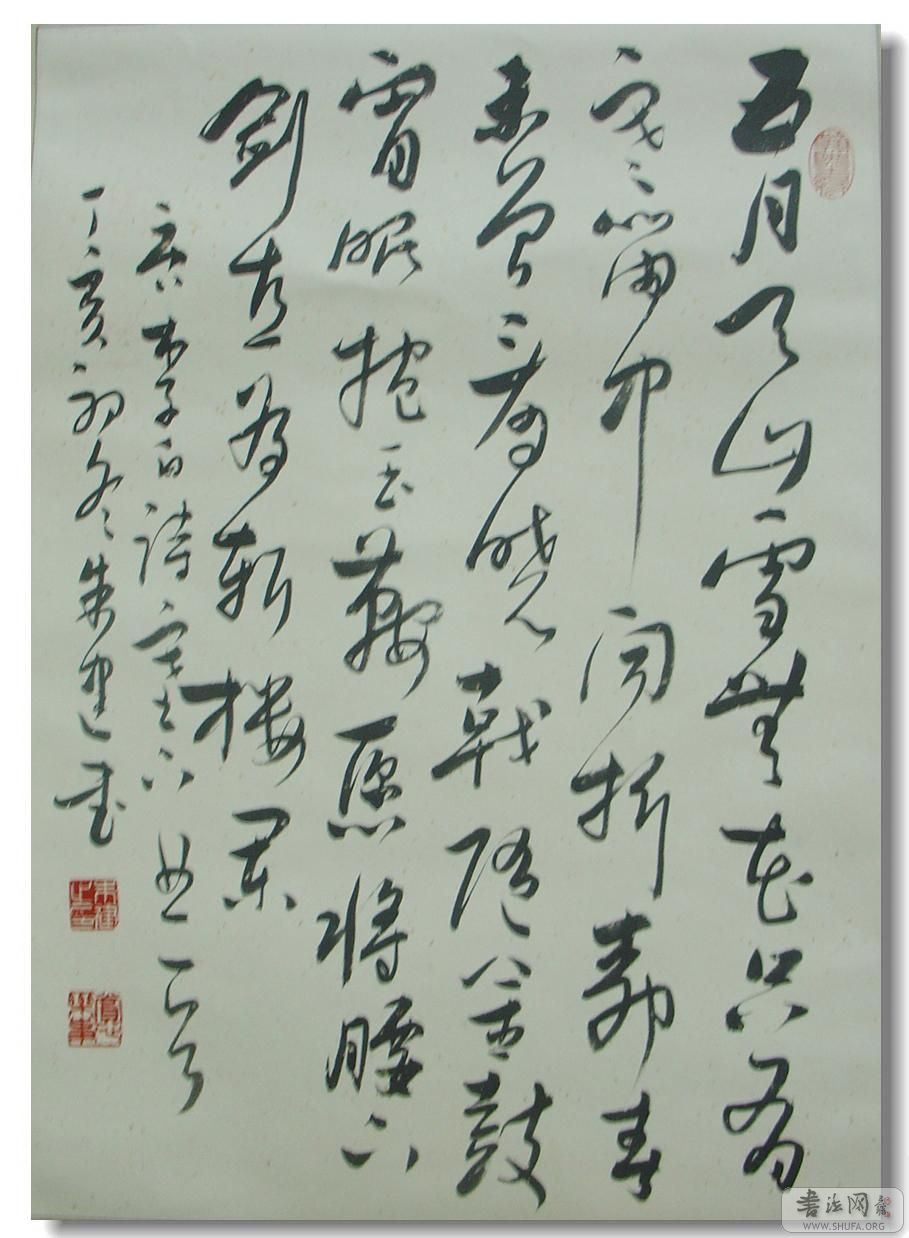 五月天山雪無花只有
寒笛中聞折柳春
未曾看曉戰隨金鼓
宵眠抱玉鞍願將腰下
劍直為斬樓蘭
李白詩塞下曲一首
丁亥初冬朱建書
書法网
WWW.SHUFA.ORG